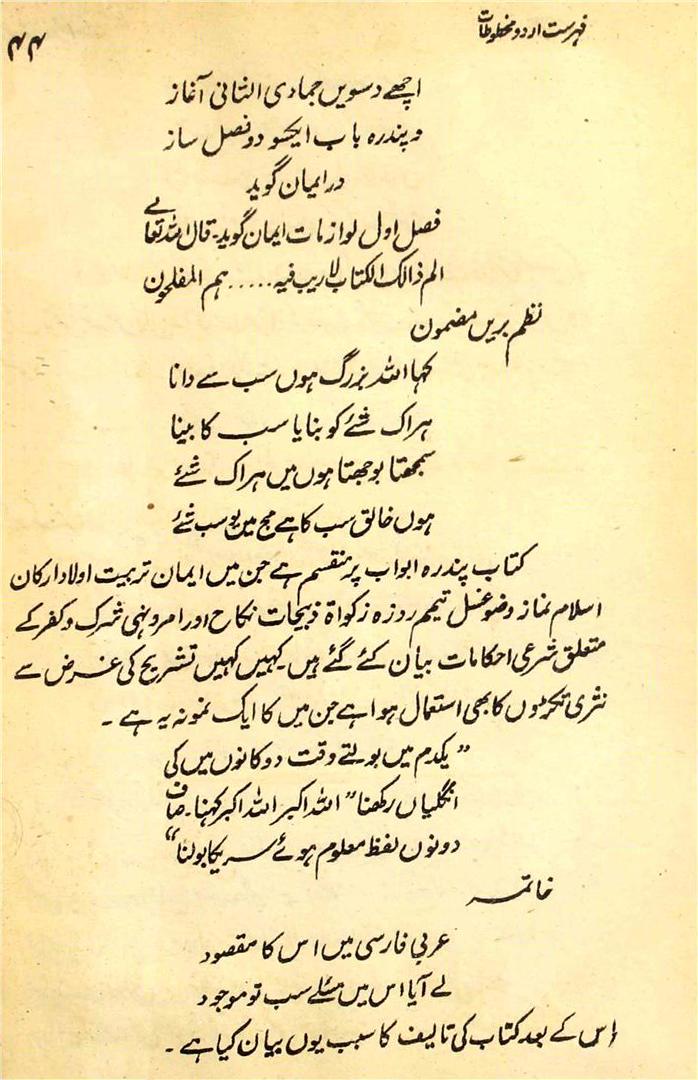 فہرست اردو مخطوطات
۴۴
اچھے دسویں جمادی الثانی آغاز
و پندرہ باب ایکسو دو فصل ساز
در ایمان گوید
فصل اول لوازمات ایمان گوید۔ قال اللہ تعالےٰ
الم ذالک الکتاب لاریب فیہ ..... ہم المفلحون
نظم بریں مضمون
کہا اللہ بزرگ ہوں سب سے دانا
ہر اک شئے کو بنایا سب کا بینا
سمجھتا بوجھتا ہوں میں ہر اک شئے
ہوں خالق سب کا ہے مج میں یو سب شئے
کتاب پندرہ ابواب پر منقسم ہے جن میں ایمان تربیت اولاد ارکان
اسلام نماز وضو غسل تیمم روزہ زکواۃ ذبیحات نکاح اور امر و نہی شرک و کفر کے
متعلق شرعی احکامات بیان کئے گئے ہیں۔ کہیں کہیں تشریح کی غرض سے
نثری ٹکڑوں کا بھی استعمال ہوا ہے جن میں کا ایک نمونہ یہ ہے ۔
” یکدم میں بولتے وقت دو کانوں میں کی
انگلیاں رکھنا“ اللہ اکبر اللہ اکبر کہنا۔ صاف
دونوں لفظ معلوم ہوئے سریکا بولنا“
خاتمہ
عربی فارسی میں اس کا مقصود
لے آیا اس میں مسئلے سب تو موجود
اس کے بعد کتاب کی تالیف کا سبب یوں بیان کیا ہے ۔